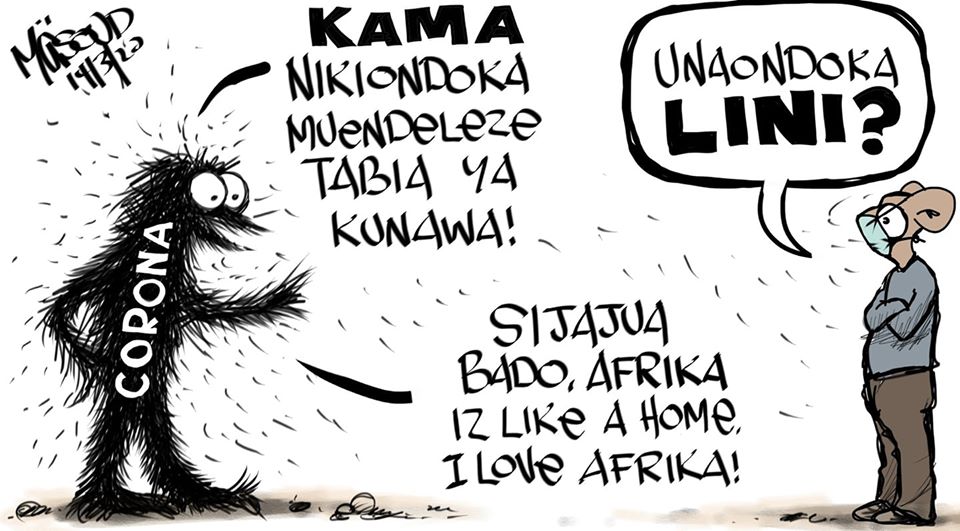 MÄSOUD
14/3/20
KAMA
NIKIONDOKA
MUENDELEZE
TABIA YA
KUNAWA!
UNAONDOKA
LINI?
CORONA
SIJAJUA
BADO. AFRIKA
IZ LIKE A HOME.
I LOVE AFRIKA!